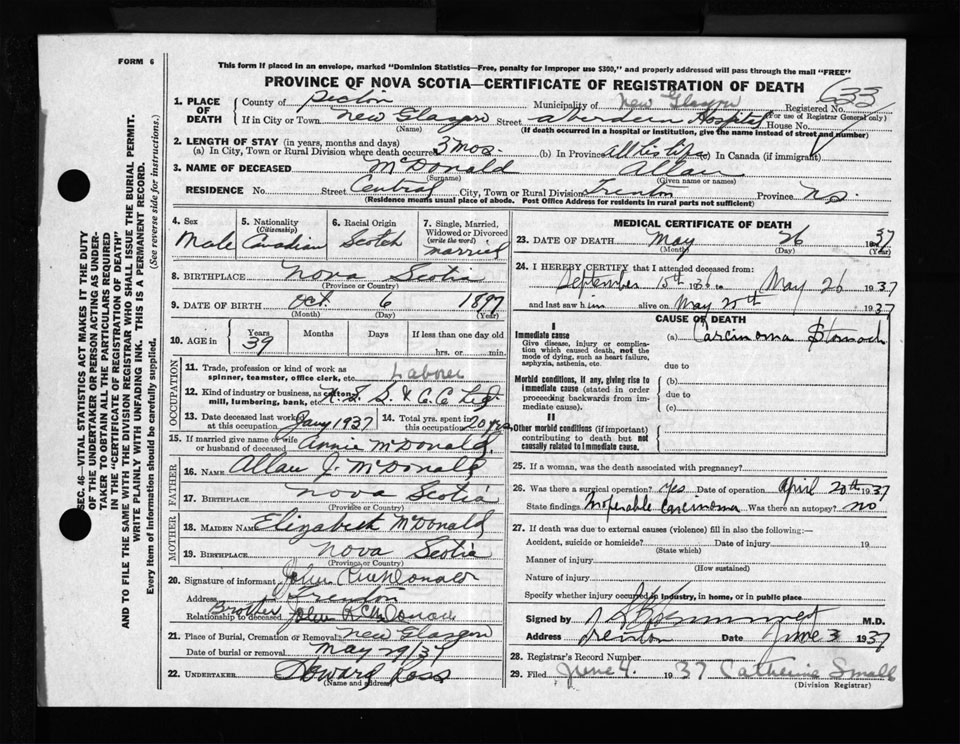 FORM 6
This form if placed in an envelope, marked "Dominion Statistics—Free, penalty for improper use $300," and properly addressed will pass through the mail "FREE"
PROVINCE OF NOVA SCOTIA—CERTIFICATE OF REGISTRATION OF DEATH
633
1. PLACE OF DEATH
County of Pictou Municipality of New Glasgow Registered No.
(For use of Registrar General only)
If in City or Town New Glasgow Street Aberdeen Hospital House No.
(Name) (If death occurred in a hospital or institution, give the name instead of street and number)
2. LENGTH OF STAY (in years, months and days)
(a) In City, Town or Rural Division where death occurred 3 mos. (b) In Province all his life (c) In Canada (if immigrant)
3. NAME OF DECEASED McDonald Allan
(Surname) (Given name or names)
RESIDENCE No. Street Central City, Town or Rural Division Trenton Province N.S.
(Residence means usual place of abode. Post Office Address for residents in rural parts not sufficient)
4. Sex Male
5. Nationality (Citizenship) Canadian
6. Racial Origin Scotch
7. Single, Married, Widowed or Divorced (write the word) married
8. BIRTHPLACE Nova Scotia
(Province or Country)
9. DATE OF BIRTH Oct. 6 1897
(Month) (Day) (Year)
10. AGE in Years 39 Months Days If less than one day old
hrs. or min.
OCCUPATION
11. Trade, profession or kind of work as spinner, teamster, office clerk, etc. Laborer
12. Kind of industry or business, as cotton mill, lumbering, bank, etc. S. & C. C. Ltd
13. Date deceased last worked at this occupation Jany 1937
14. Total yrs. spent in this occupation 20 yrs.
15. If married give name of wife or husband of deceased Annie McDonald.
FATHER
16. NAME Allan J. McDonald
17. BIRTHPLACE Nova Scotia
(Province or Country)
MOTHER
18. MAIDEN NAME Elizabeth McDonald
19. BIRTHPLACE Nova Scotia
(Province or Country)
20. Signature of informant John
Address Trenton
Relationship to deceased Brother John
21. Place of Burial, Cremation or Removal New Glasgow
Date of burial or removal May 29/37
22. UNDERTAKER Howard Ross
(Name and address)
MEDICAL CERTIFICATE OF DEATH
23. DATE OF DEATH May 26 1937
(Month) (Day) (Year)
24. I HEREBY CERTIFY that I attended deceased from:
September 15th 1936 to May 26 1937
and last saw him alive on May 25th 1937
CAUSE OF DEATH
I
Immediate cause
Give disease, injury or complication which caused death, not the mode of dying, such as heart failure, asphyxia, asthenia, etc.
(a) Carcinoma Stomach
due to
Morbid conditions, if any, giving rise to immediate cause (stated in order proceeding backwards from immediate cause).
(b)
due to
(c)
II
Other morbid conditions (if important) contributing to death but not causally related to immediate cause.
25. If a woman, was the death associated with pregnancy?
26. Was there a surgical operation? yes Date of operation April 20th 1937
State findings Inoperable Carcinoma Was there an autopsy? no
27. If death was due to external causes (violence) fill in also the following:—
Accident, suicide or homicide? Date of injury 19
(State which)
Manner of injury
(How sustained)
Nature of injury
Specify whether injury occurred in industry, in home, or in public place
Signed by M.D.
Address Trenton Date June 3 1937
28. Registrar's Record Number
29. Filed June 4. 1937 Catherine Small
(Division Registrar)
SEC. 46—VITAL STATISTICS ACT MAKES IT THE DUTY
OF THE UNDERTAKER OR PERSON ACTING AS UNDER-
TAKER TO OBTAIN ALL THE PARTICULARS REQUIRED
IN THE "CERTIFICATE OF REGISTRATION OF DEATH"
AND TO FILE THE SAME WITH THE DIVISION REGISTRAR WHO SHALL ISSUE THE BURIAL PERMIT.
WRITE PLAINLY WITH UNFADING INK. THIS IS A PERMANENT RECORD.
Every item of Information should be carefully supplied. (See reverse side for instructions.)